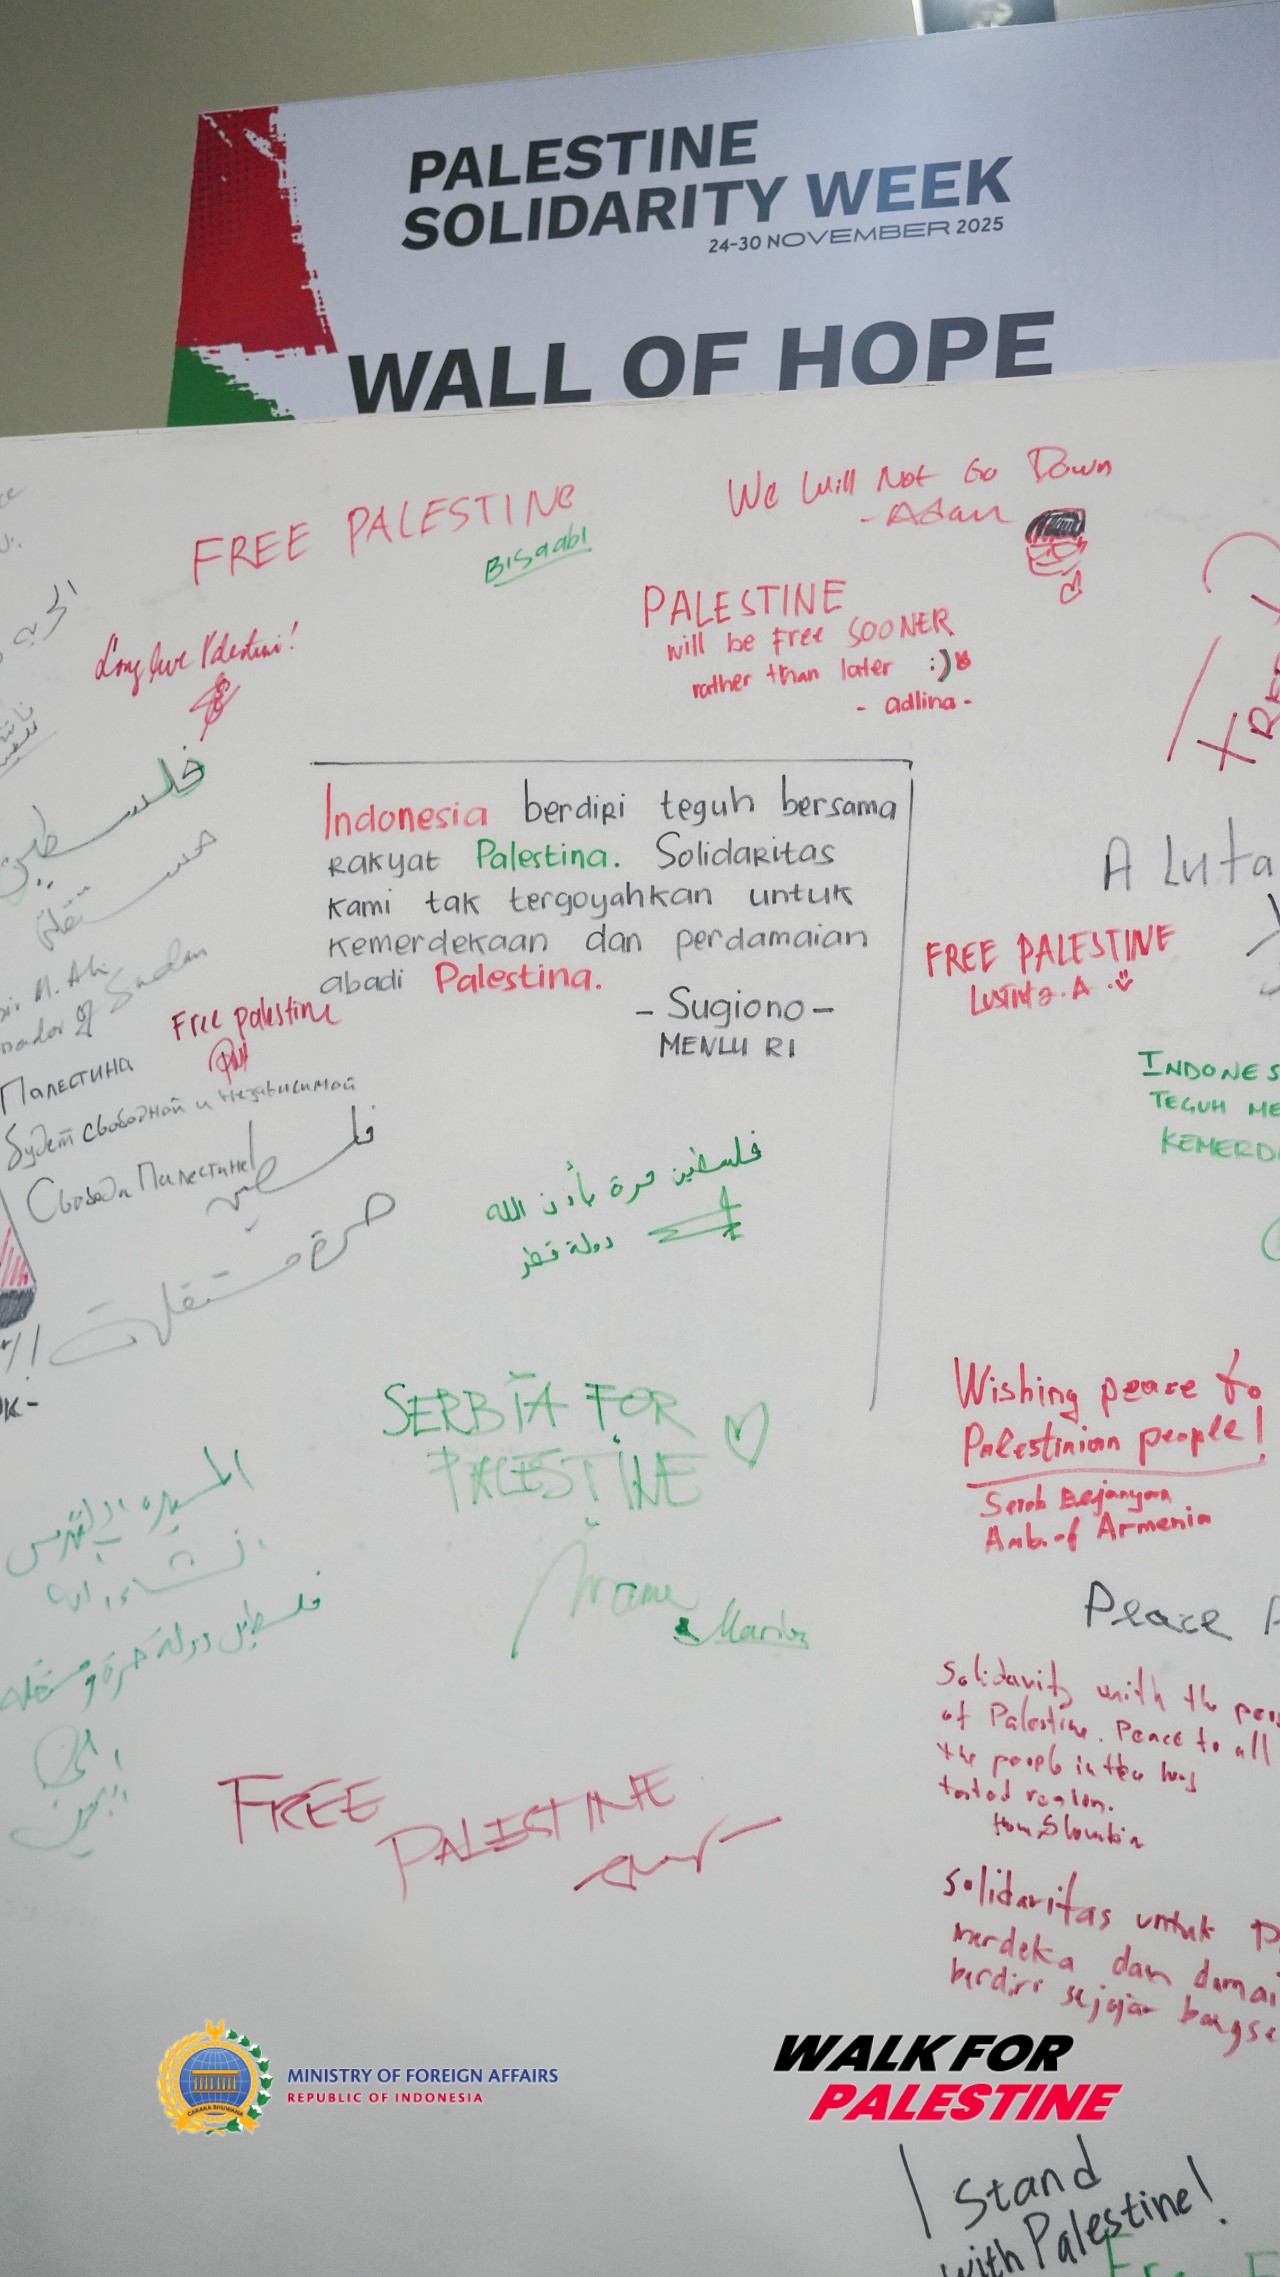 PALESTINE
SOLIDARITY WEEK
24-30 NOVEMBER 2025
WALL OF HOPE
FREE PALESTINE
BISaabl
We Will Not Go Down
- Adan
Long live Palestine!
PALESTINE
will be free SOONER
rather than later :)
- adlina -
فلسطين
مستقلة
Indonesia berdiri teguh bersama
rakyat Palestina. Solidaritas
kami tak tergoyahkan untuk
kemerdekaan dan perdamaian
abadi Palestina.
- Sugiono -
MENLU RI
A Luta
FREE PALESTINE
M. Ali
of Sudan
Free palestine
Палестина
будет свободной и независимой
Свобода Палестине!
فلسطين
حرة مستقلة
INDONES
TEGUH ME
KEMERD
فلسطين حرة بأذن الله
دولة قطر
SERBIA FOR
PALESTINE
Wishing peace to
Palestinian people!
Amb. of Armenia
Peace
فلسطين دولة حرة ومستقلة
Solidarity with the
of Palestine. Peace to all
the people in the
region.
FREE
PALESTINE
Solidaritas untuk P
merdeka dan damai
berdiri sejajar bangsa
MINISTRY OF FOREIGN AFFAIRS
REPUBLIC OF INDONESIA
CARAKA BHUWANA
WALK FOR
PALESTINE
I Stand
with Palestine!